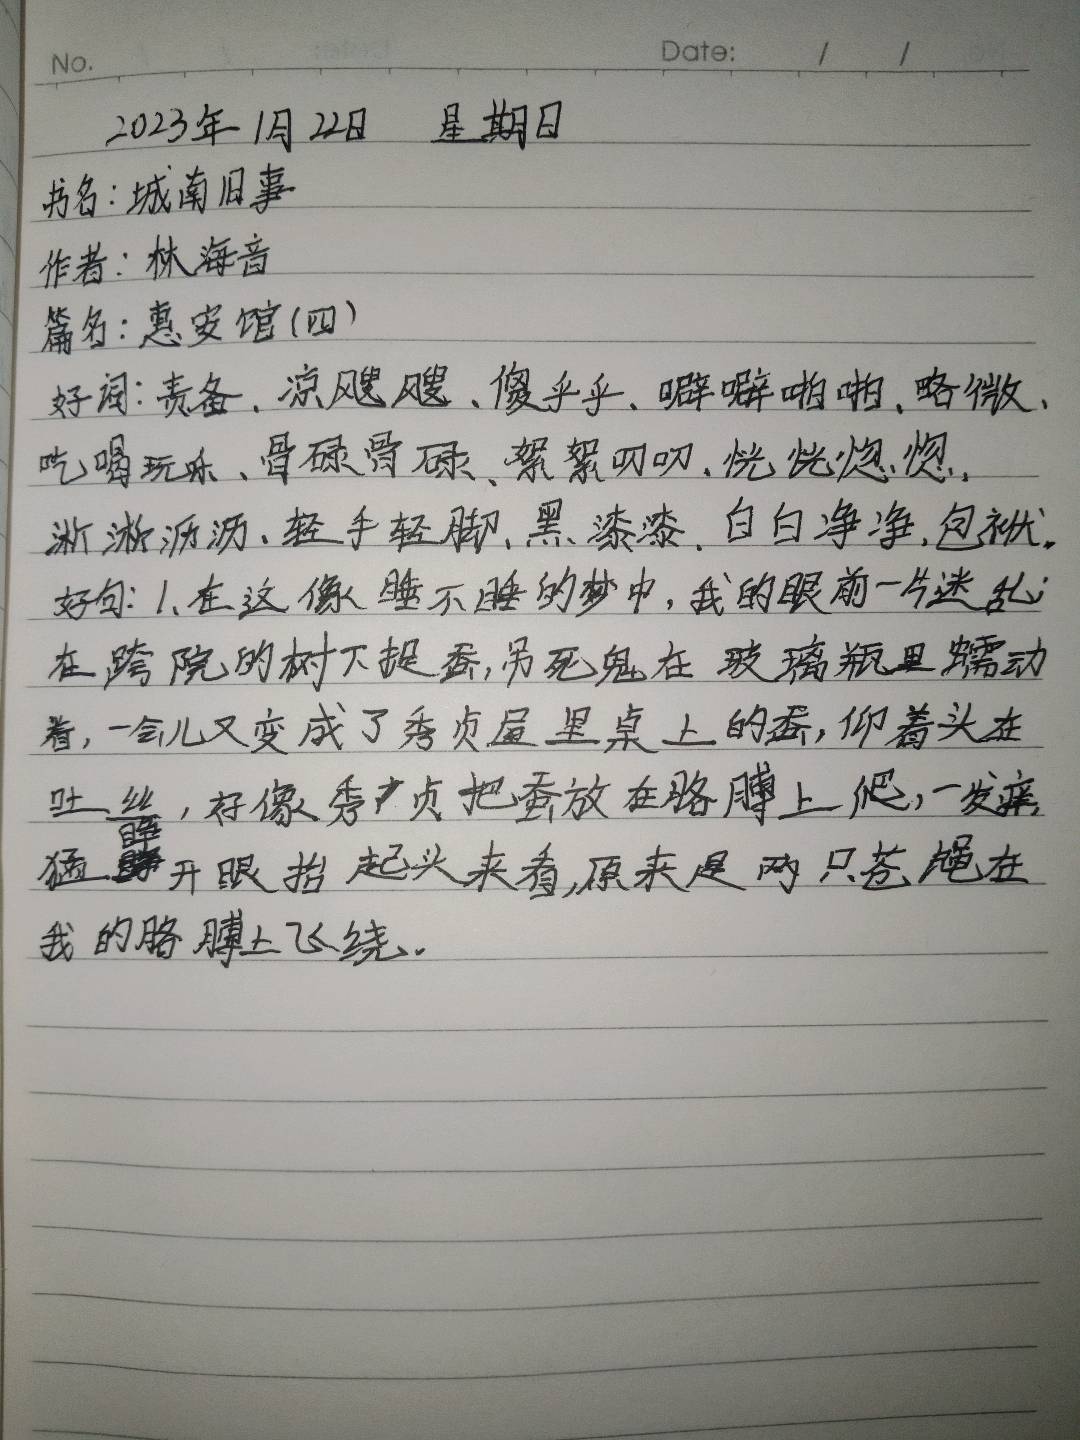 No. Date: / /
2023年1月22日 星期日
书名:城南旧事
作者:林海音
篇名:惠安馆(四)
好词:责备、凉飕飕、傻乎乎、噼噼啪啪、略微、
吃喝玩乐、骨碌骨碌、絮絮叨叨、恍恍惚惚、
淅淅沥沥、轻手轻脚、黑漆漆、白白净净、包袱。
好句:1、在这像睡不睡的梦中,我的眼前一片迷乱;
在跨院的树下捉蚕,吊死鬼在玻璃瓶里蠕动
着,一会儿又变成了秀贞屋里桌上的蚕,仰着头在
吐丝,好像秀贞把蚕放在胳膊上爬,一发痒,
猛睁开眼抬起头来看,原来是两只苍蝇在
我的胳膊上飞绕。